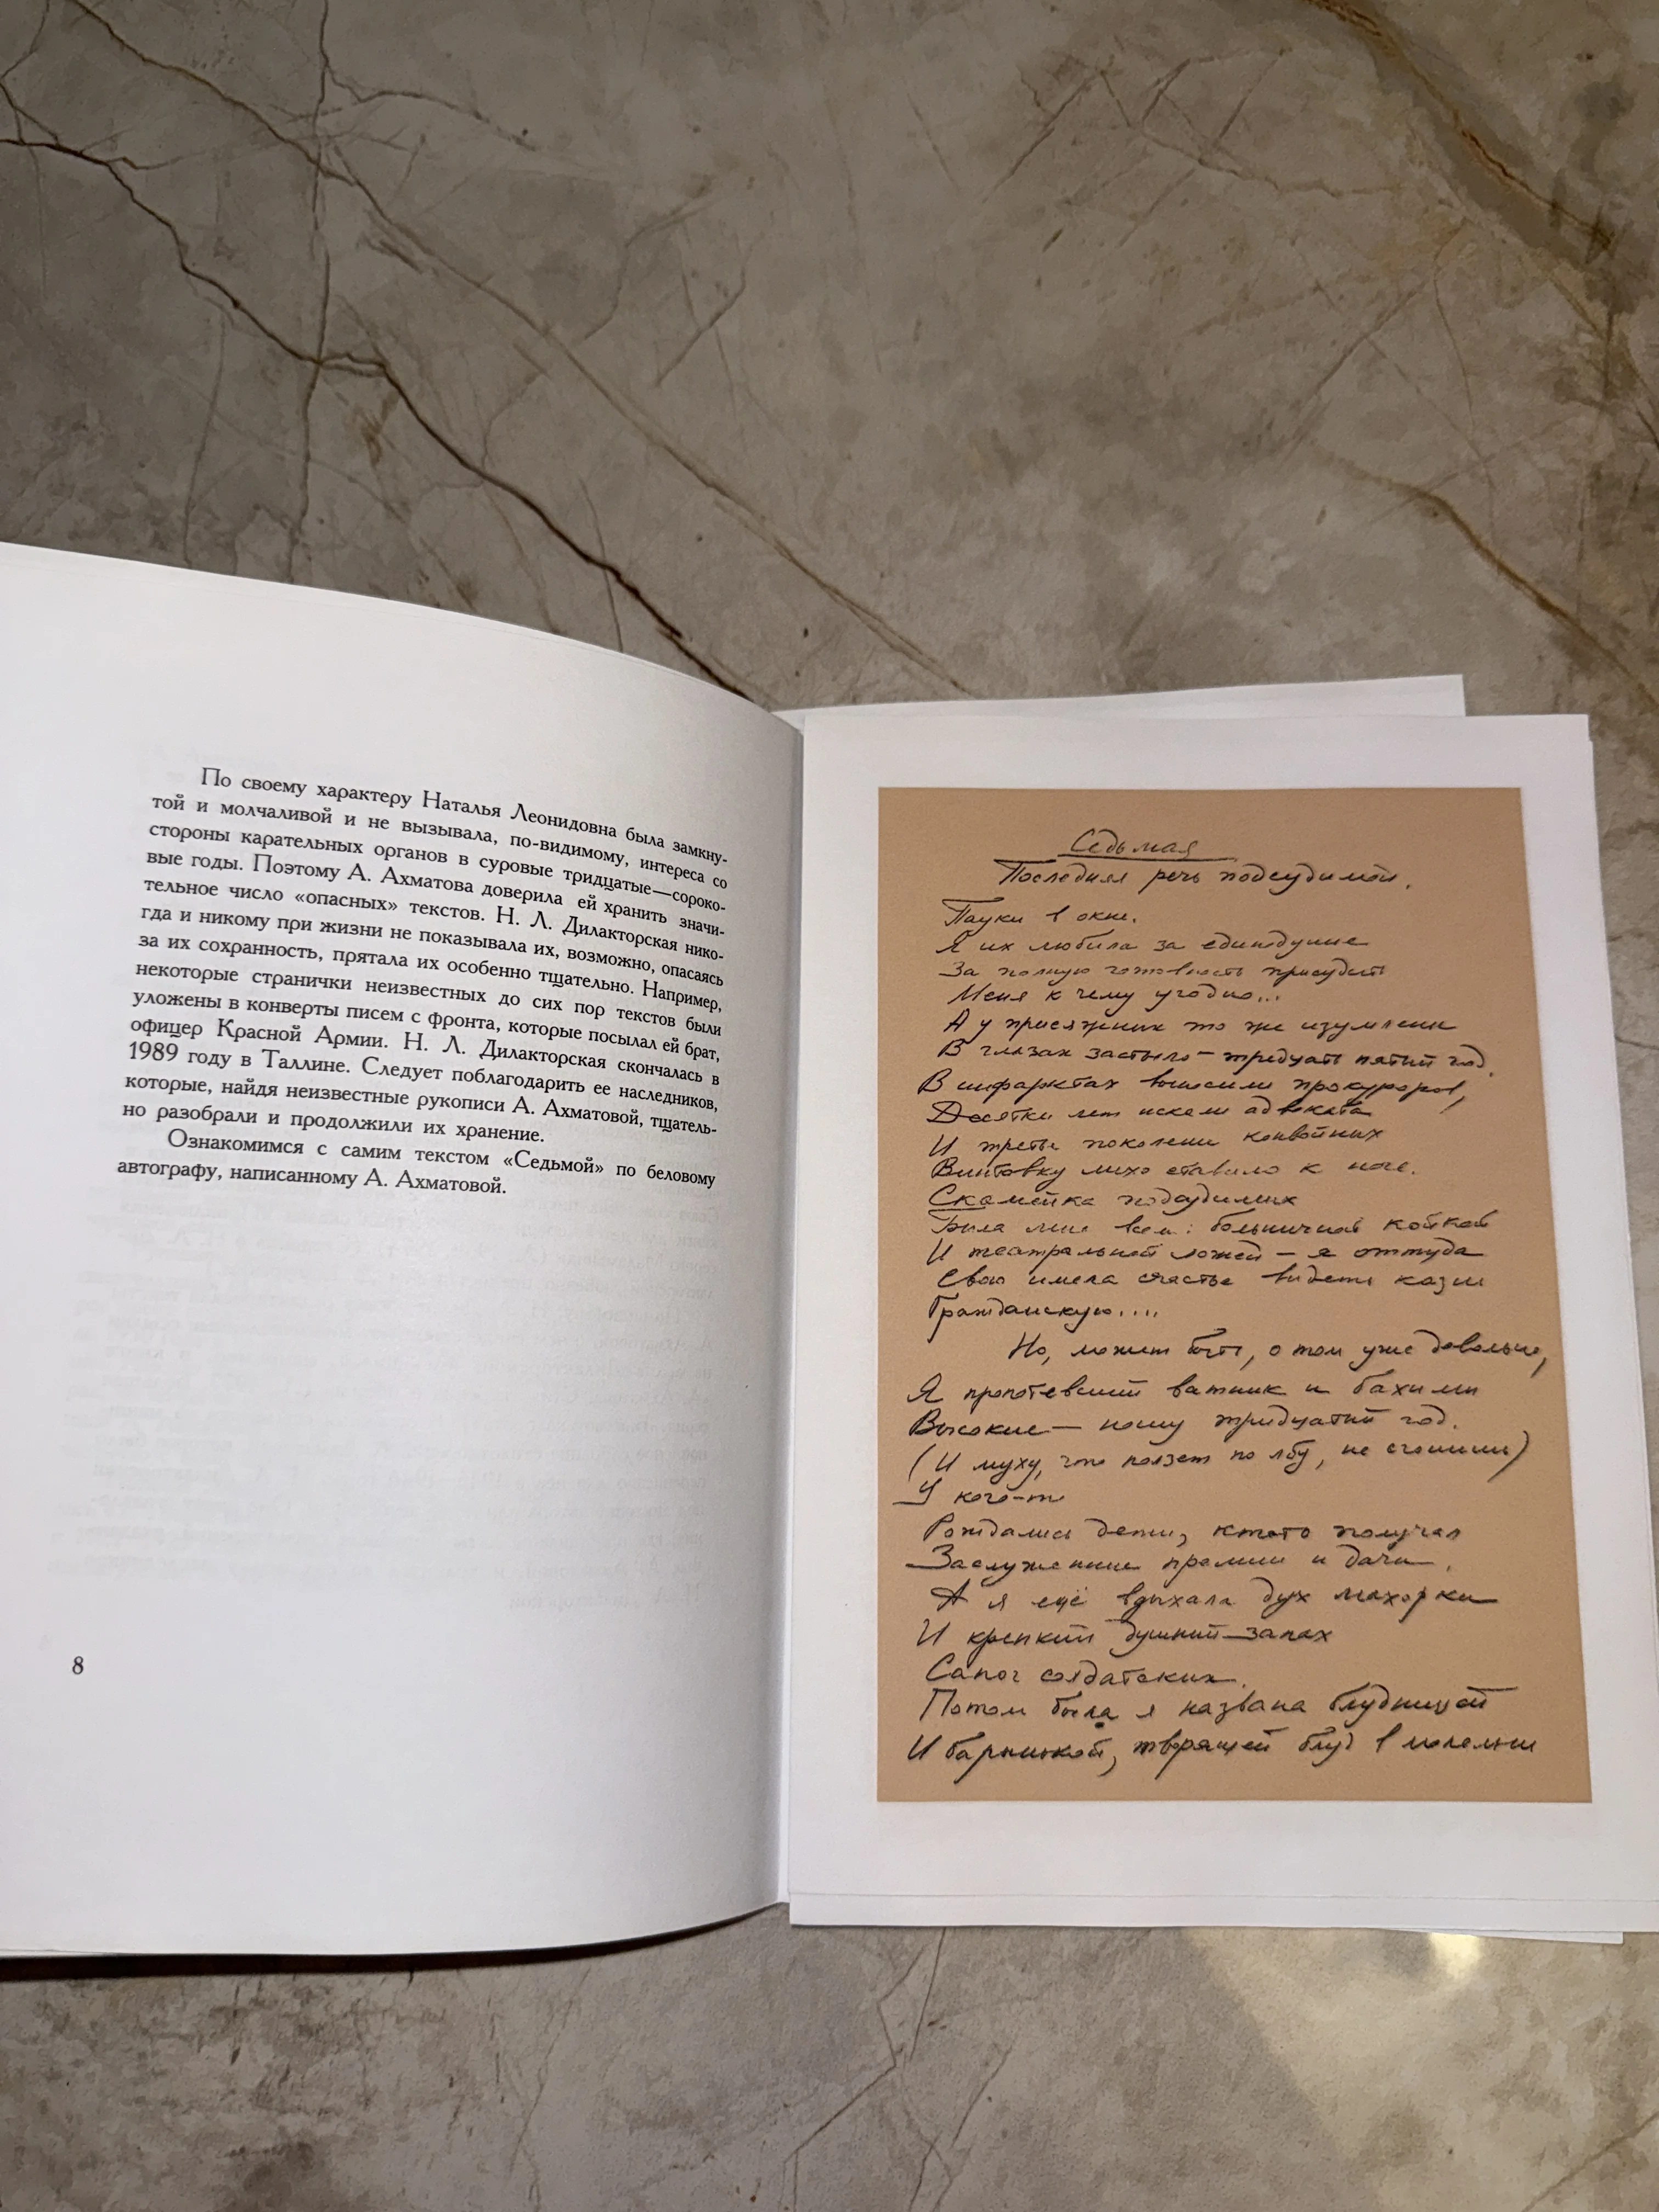 По своему характеру Наталья Леонидовна была замкну-
той и молчаливой и не вызывала, по-видимому, интереса со
стороны карательных органов в суровые тридцатые—сороко-
вые годы. Поэтому А. Ахматова доверила ей хранить значи-
тельное число «опасных» текстов. Н. Л. Дилакторская нико-
гда и никому при жизни не показывала их, возможно, опасаясь
за их сохранность, прятала их особенно тщательно. Например,
некоторые странички неизвестных до сих пор текстов были
уложены в конверты писем с фронта, которые посылал ей брат,
офицер Красной Армии. Н. Л. Дилакторская скончалась в
1989 году в Таллине. Следует поблагодарить ее наследников,
которые, найдя неизвестные рукописи А. Ахматовой, тщатель-
но разобрали и продолжили их хранение.
Ознакомимся с самим текстом «Седьмой» по беловому
автографу, написанному А. Ахматовой.
8
Седьмая
Последняя речь подсудимой.
Пауки в окне.
Я их любила за единодушие
За полную готовность присудить
Меня к чему угодно...
А у присяжных то же изумленье
В глазах застыло — тридцать пятый год.
В инфарктах выносили прокуроров,
Десятки лет искали адвоката
И третье поколенье конвойных
Винтовку лихо ставило к ноге.
Скамейка подсудимых
Была мне всем: больничной койкой
И театральной ложей — я оттуда
Свою имела счастье видеть казнь
Гражданскую....
Но, может быть, о том уже довольно,
Я пропотевший ватник и бахилы
Высокие — ношу тридцатый год.
(И муху, что ползет по лбу, не сгоним)
У кого-то
Рождались дети, кто-то получал
Заслуженные премии и дачи.
А я ещё вдыхала дух махорки
И крепкий душный запах
Сапог солдатских.
Потом была я названа блудницей
И барынькой, творящей блуд в молельне